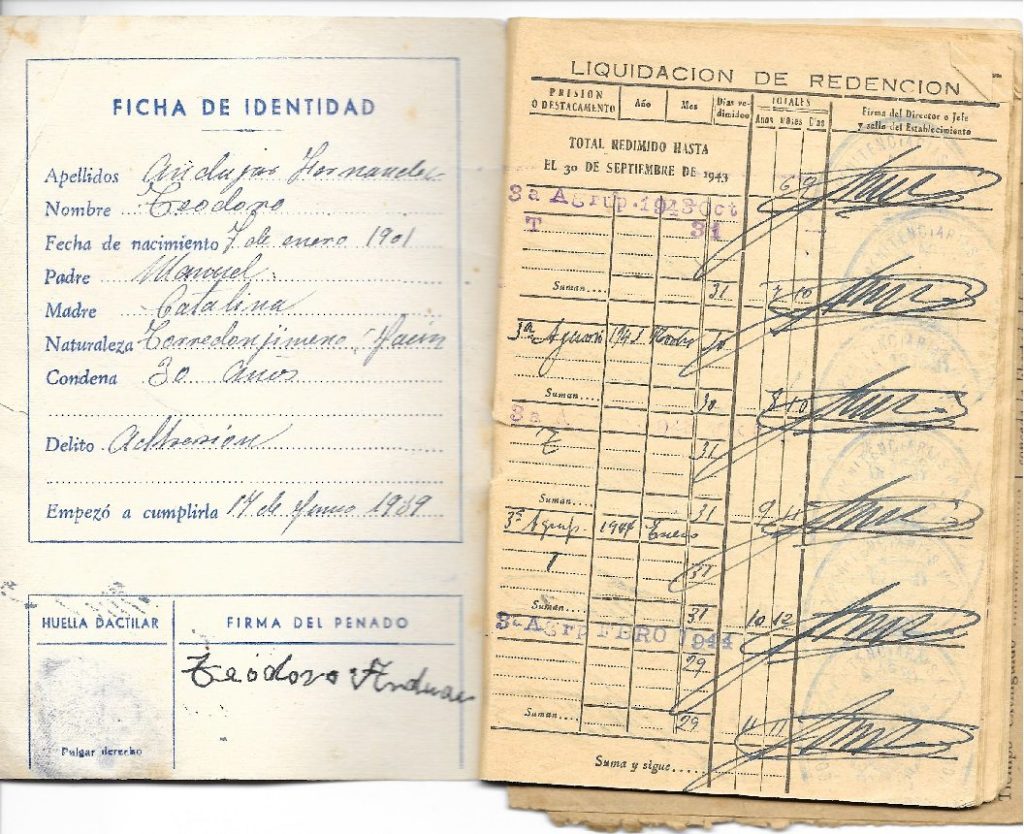 FICHA DE IDENTIDAD
Apellidos Andujar Hernandez
Nombre Teodoro
Fecha de nacimiento 7 de enero 1901
Padre Manuel
Madre Catalina
Naturaleza Torredonjimeno, Jaén
Condena 30 años
Delito Adhesion
Empezó a cumplirla 14 de Junio 1939
HUELLA DACTILAR
Pulgar derecho
FIRMA DEL PENADO
Teodoro Andujar
LIQUIDACION DE REDENCION
PRISIÓN O DESTACAMENTO Año Mes Días redimidos TOTALES Años Meses Días Firma del Director o Jefe y sello del Establecimiento
TOTAL REDIMIDO HASTA
EL 30 DE SEPTIEMBRE DE 1943 6 9
3a Agrup. 1943 Oct
T 31
Suman.... 31 7 10
3ª 1943 30
Suman.... 30 8 10
3a A
T 31
Suman.... 31 9 11
3ª Agrup. 1944 Enero
T 31
Suman.... 31 10 12
3a Agrp FERO 1944
29
Suman.... 29 11 11
Suma y sigue......